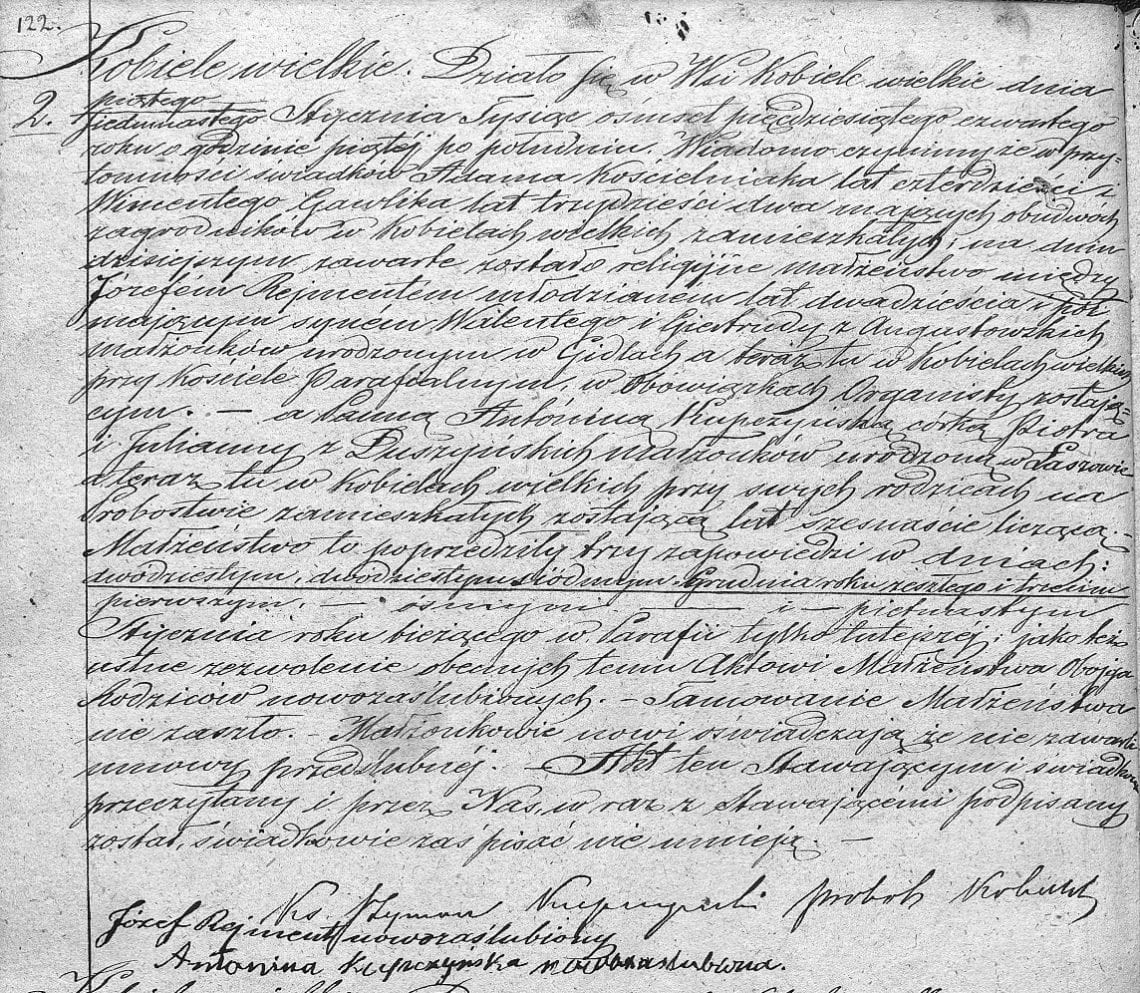 122.
Kobiele wielkie. Działo się w Wsi Kobiele wielkie dnia
piątego
2. siedmnastego Stycznia Tysiąc ośmset pięćdziesiątego czwartego
roku o godzinie piątéj po południu. Wiadomo czynimy że w przy=
tomności świadków Adama Kościelniaka lat czterdzieści i
Wincentego Gawlika lat trzydzieści dwa mających obudwóch
zagrodników w Kobielach wielkich zamieszkałych; na dniu
dzisiejszym zawarte zostało religijne małżeństwo między
Józefem Rejmentem młodzianem lat dwadzieścia i pół
mającym synem Walentego i Giertrudy z Augustowskich
małżonków urodzonym w Gidlach a teraz tu w Kobielach wielkich
przy Kościele Parafialnym, w obowiązkach Organisty zostają=
cym. — a Panną Antoniną Kupczyńską córką Piotra
i Julianny z Duszyńskich małżonków urodzoną w
a teraz tu w Kobielach wielkich przy swych rodzicach na
Probostwie zamieszkałych zostającą lat szesnaście liczącą. –
Małżeństwo to poprzedziły trzy zapowiedzi w dniach:
dwódziestym, dwódziestym siódmym Grudnia roku zeszłego i trzecim
pierwszym. — ósmym — i — piętnastym
Stycznia roku bieżącego w Parafii tylko tutejszéj; jako też
ustne zezwolenie obecnych temu Aktowi Małżeństwa Obojga
Rodziców nowozaślubionych. – Tamowanie Małżeństwa
nie zaszło. – Małżonkowie nowi oświadczają że nie zawarli
umowy przedślubnéj. – Akt ten Stawającym i świadkom
przeczytany i przez Nas, w raz z Stawającémi podpisany
został, świadkowie zaś pisać nie umieją. —
Ks. Szymon Kupczyński Probosz
Józef Rejment nowozaślubiony
Antonina Kupczyńska nowozaslubiona.